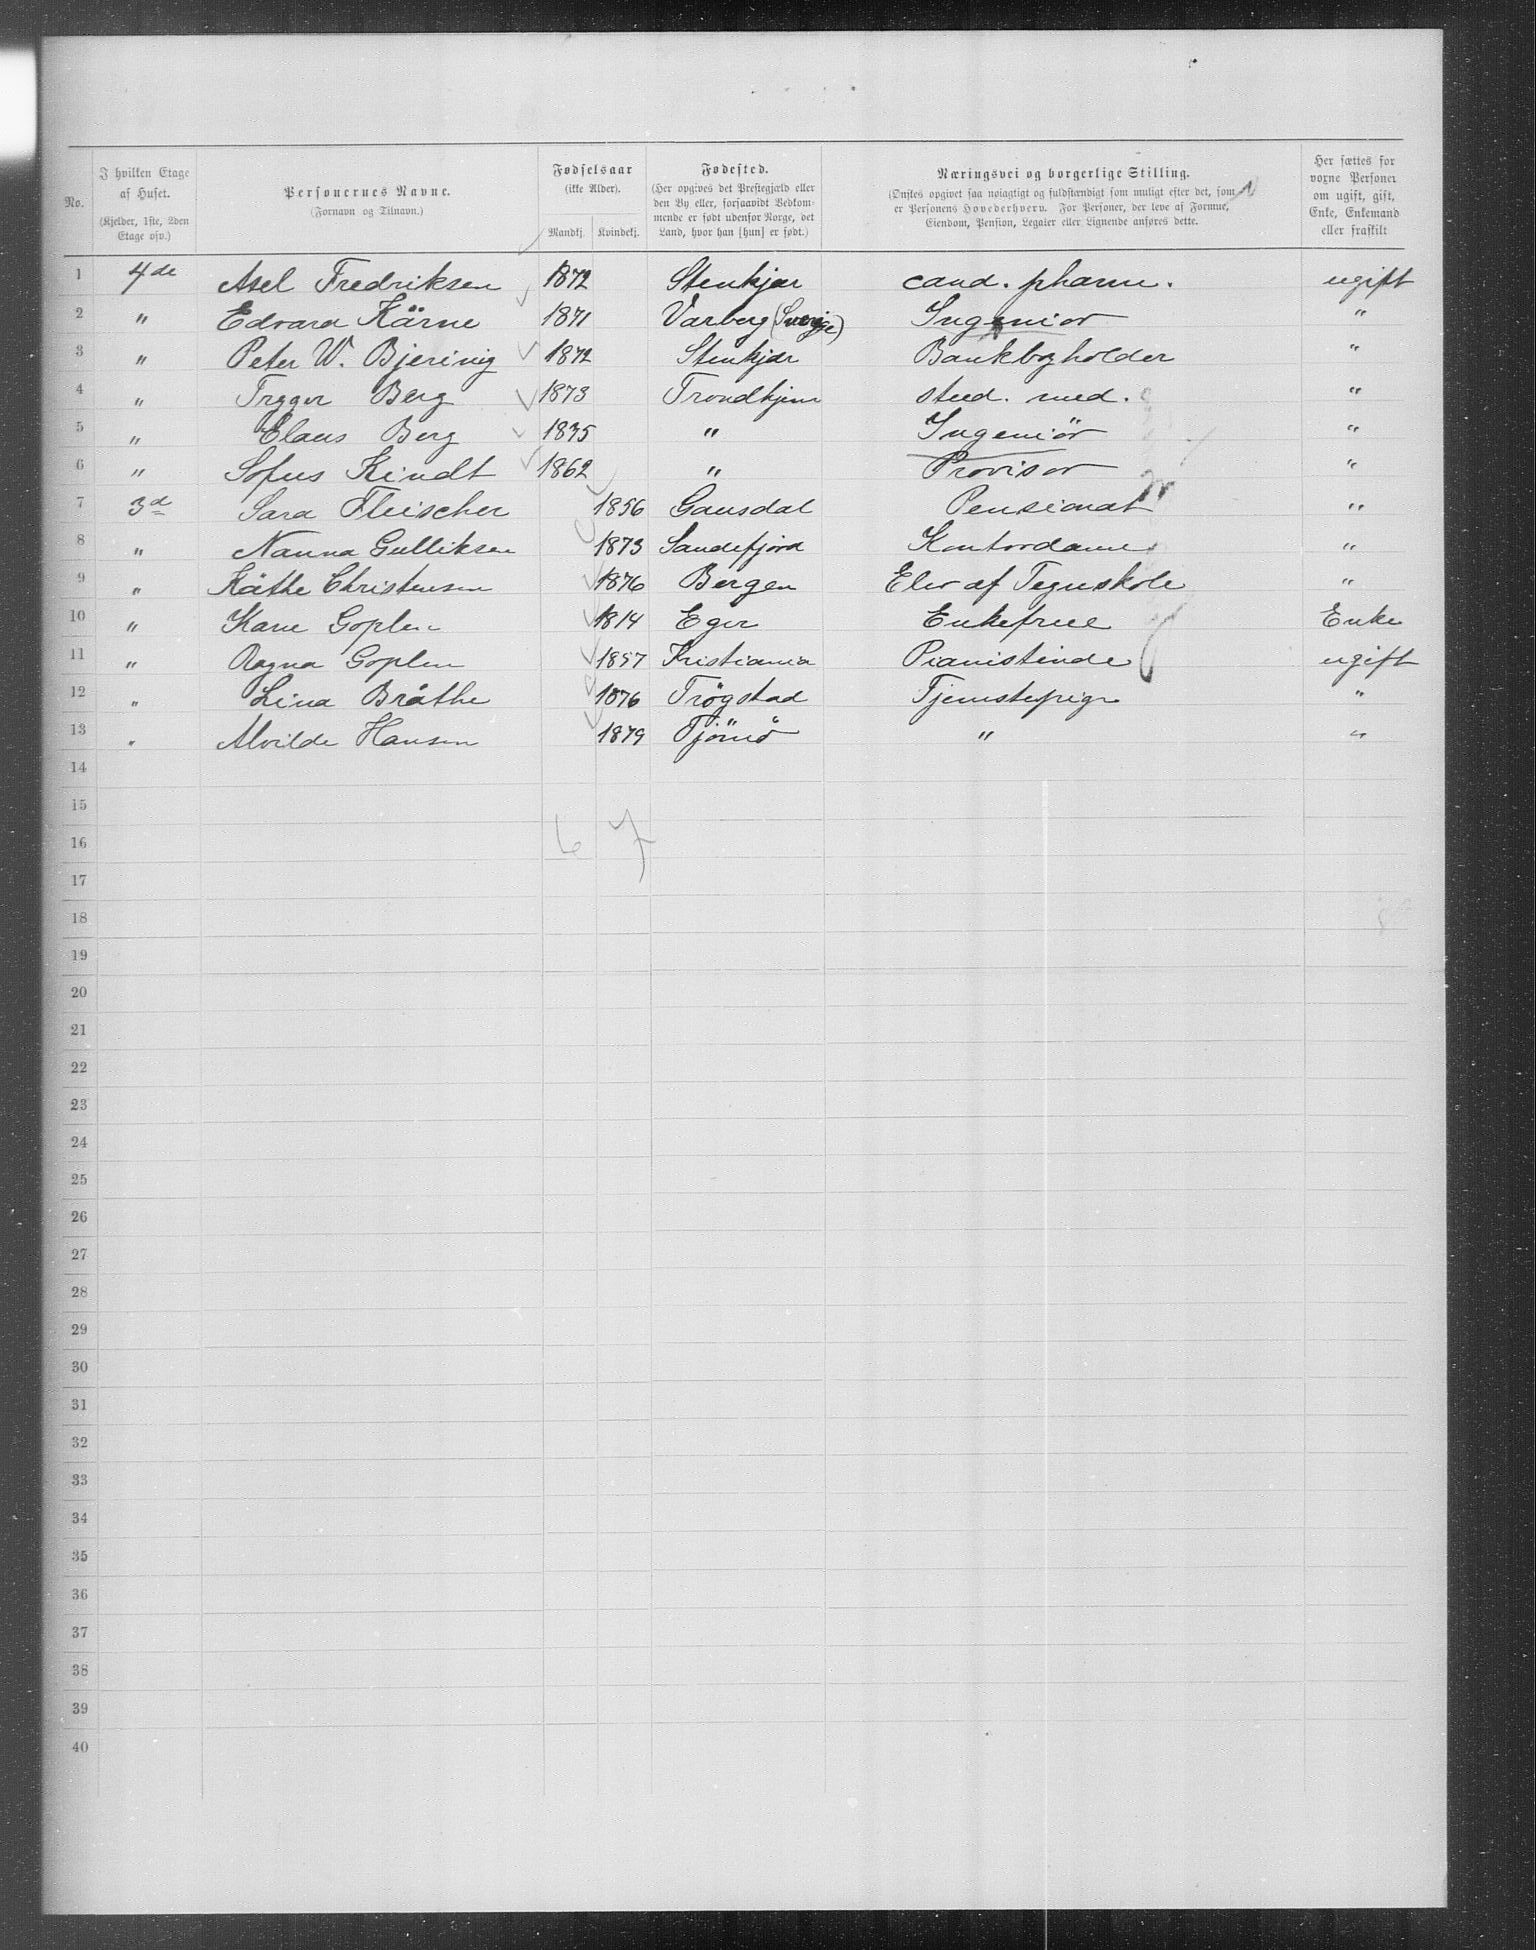 No.
I hvilken Etage af Huset.
(Kjelder, 1ste, 2den Etage osv.)
Personernes Navne.
(Fornavn og Tilnavn.)
Fødselsaar
(ikke Alder).
Mandkj. Kvindekj.
Fødested.
(Her opgives det Prestegjæld eller
den By eller, forsaavidt Vedkom-
mende er født udenfor Norge, det
Land, hvor han [hun] er født.)
Næringsvei og borgerlige Stilling.
(Ønskes opgivet saa nøiagtigt og fuldstændigt som muligt efter det, som
er Personens Hovederhverv. For Personer, der leve af Formue,
Eiendom, Pension, Legater eller Lignende anføres dette.
Her sættes for
voxne Personer
om ugift, gift,
Enke, Enkemand
eller fraskilt
1 4de Axel Fredriksen 1872 Stenkjær cand. pharm. ugift
2 " Edvard Kärne 1871 Varberg (Sverige) Ingeniør "
3 " Peter W. Bjering 1872 Stenkjær Bankbogholder "
4 " Trygve Berg 1873 Trondhjem stud. med. "
5 " Claus Berg 1875 " Ingeniör "
6 " Sofus Kindt 1862 " Provisor "
7 3d Sara Fleischer 1856 Gausdal Pensionat "
8 " Nanna Gulliksen 1873 Sandefjord Kontordame "
9 " Käthe Christensen 1876 Bergen Elev af Tegneskole "
10 " Karen Goplen 1814 Eger Enkefrue Enke
11 " Ragna Goplen 1857 Kristiania Pianistinde ugift
12 " Lina Bråthe 1876 Trøgstad Tjenestepige "
13 " Alvilde Hansen 1879 Tjömö " "
14
15
16 6 7
17
18
19
20
21
22
23
24
25
26
27
28
29
30
31
32
33
34
35
36
37
38
39
40